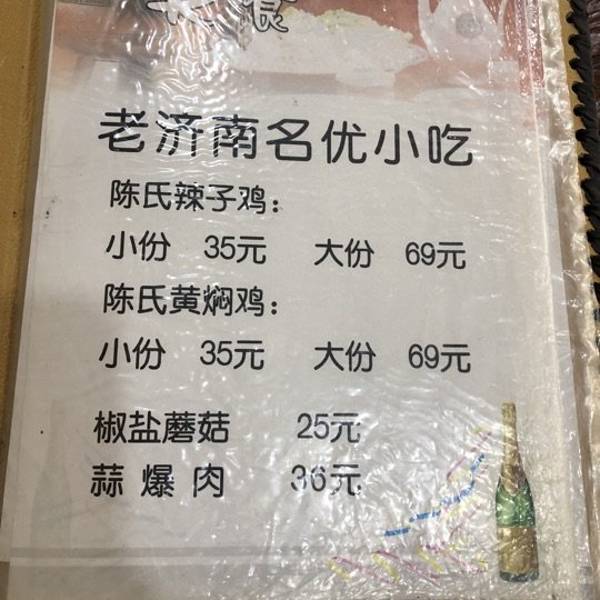 食
老济南名优小吃
陈氏辣子鸡：
小份 35元 大份 69元
陈氏黄焖鸡：
小份 35元 大份 69元
椒盐蘑菇 25元
蒜爆肉 36元